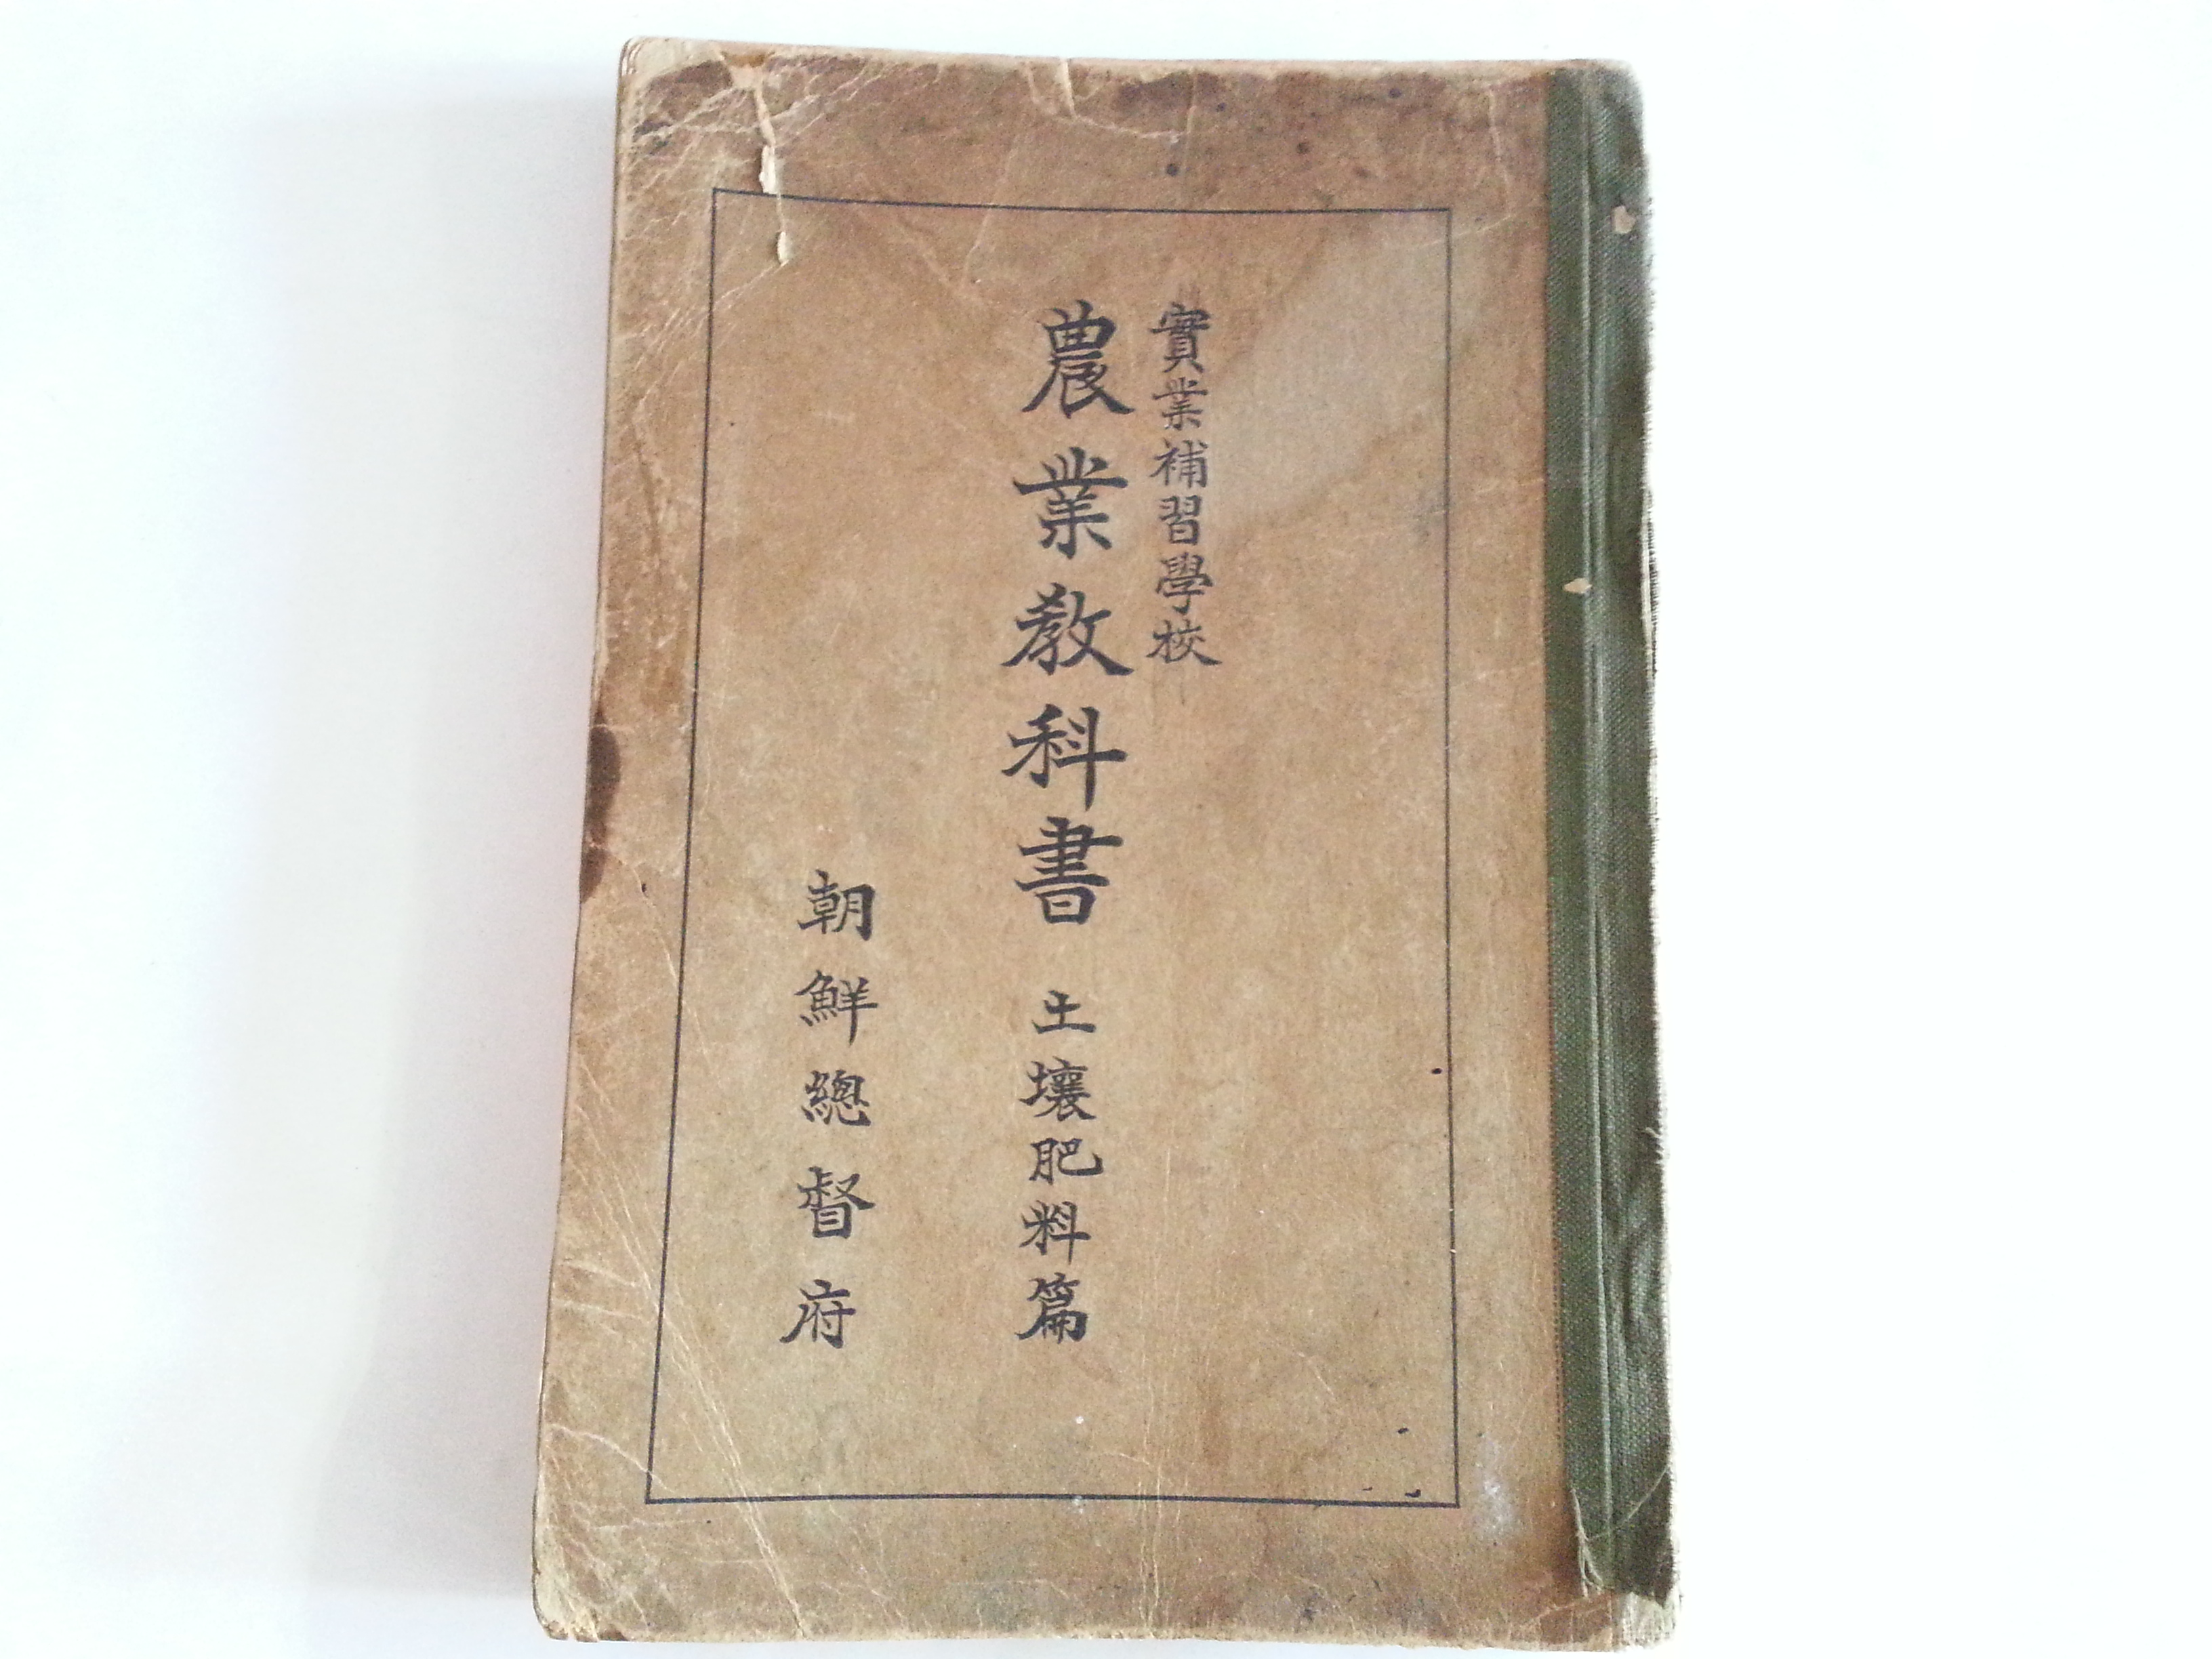 實業補習學校
農業敎科書 土壤肥料篇
朝鮮總督府